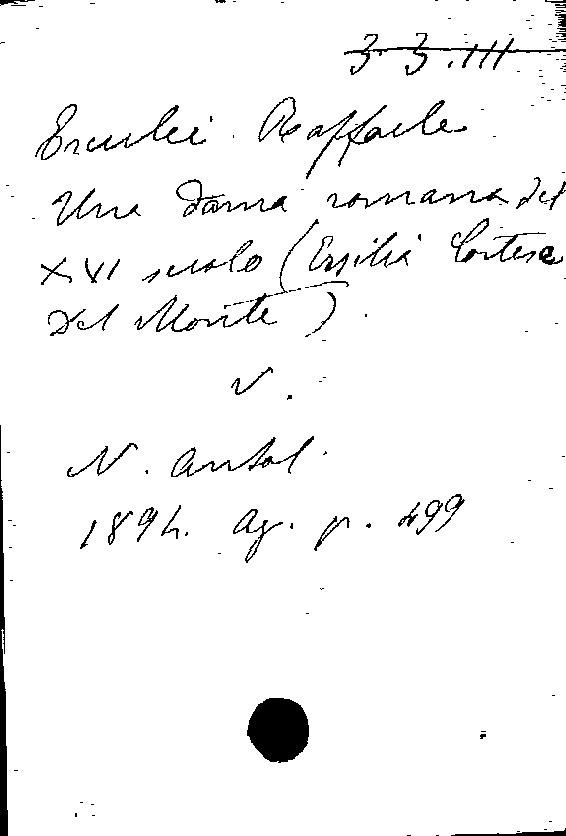 3.3.III
Erculei Raffaele
Una dama romana del
XVI secolo (Ersilia Cortese
Del Monte).
V.
N. Antol.
1894. Ag. p. 499